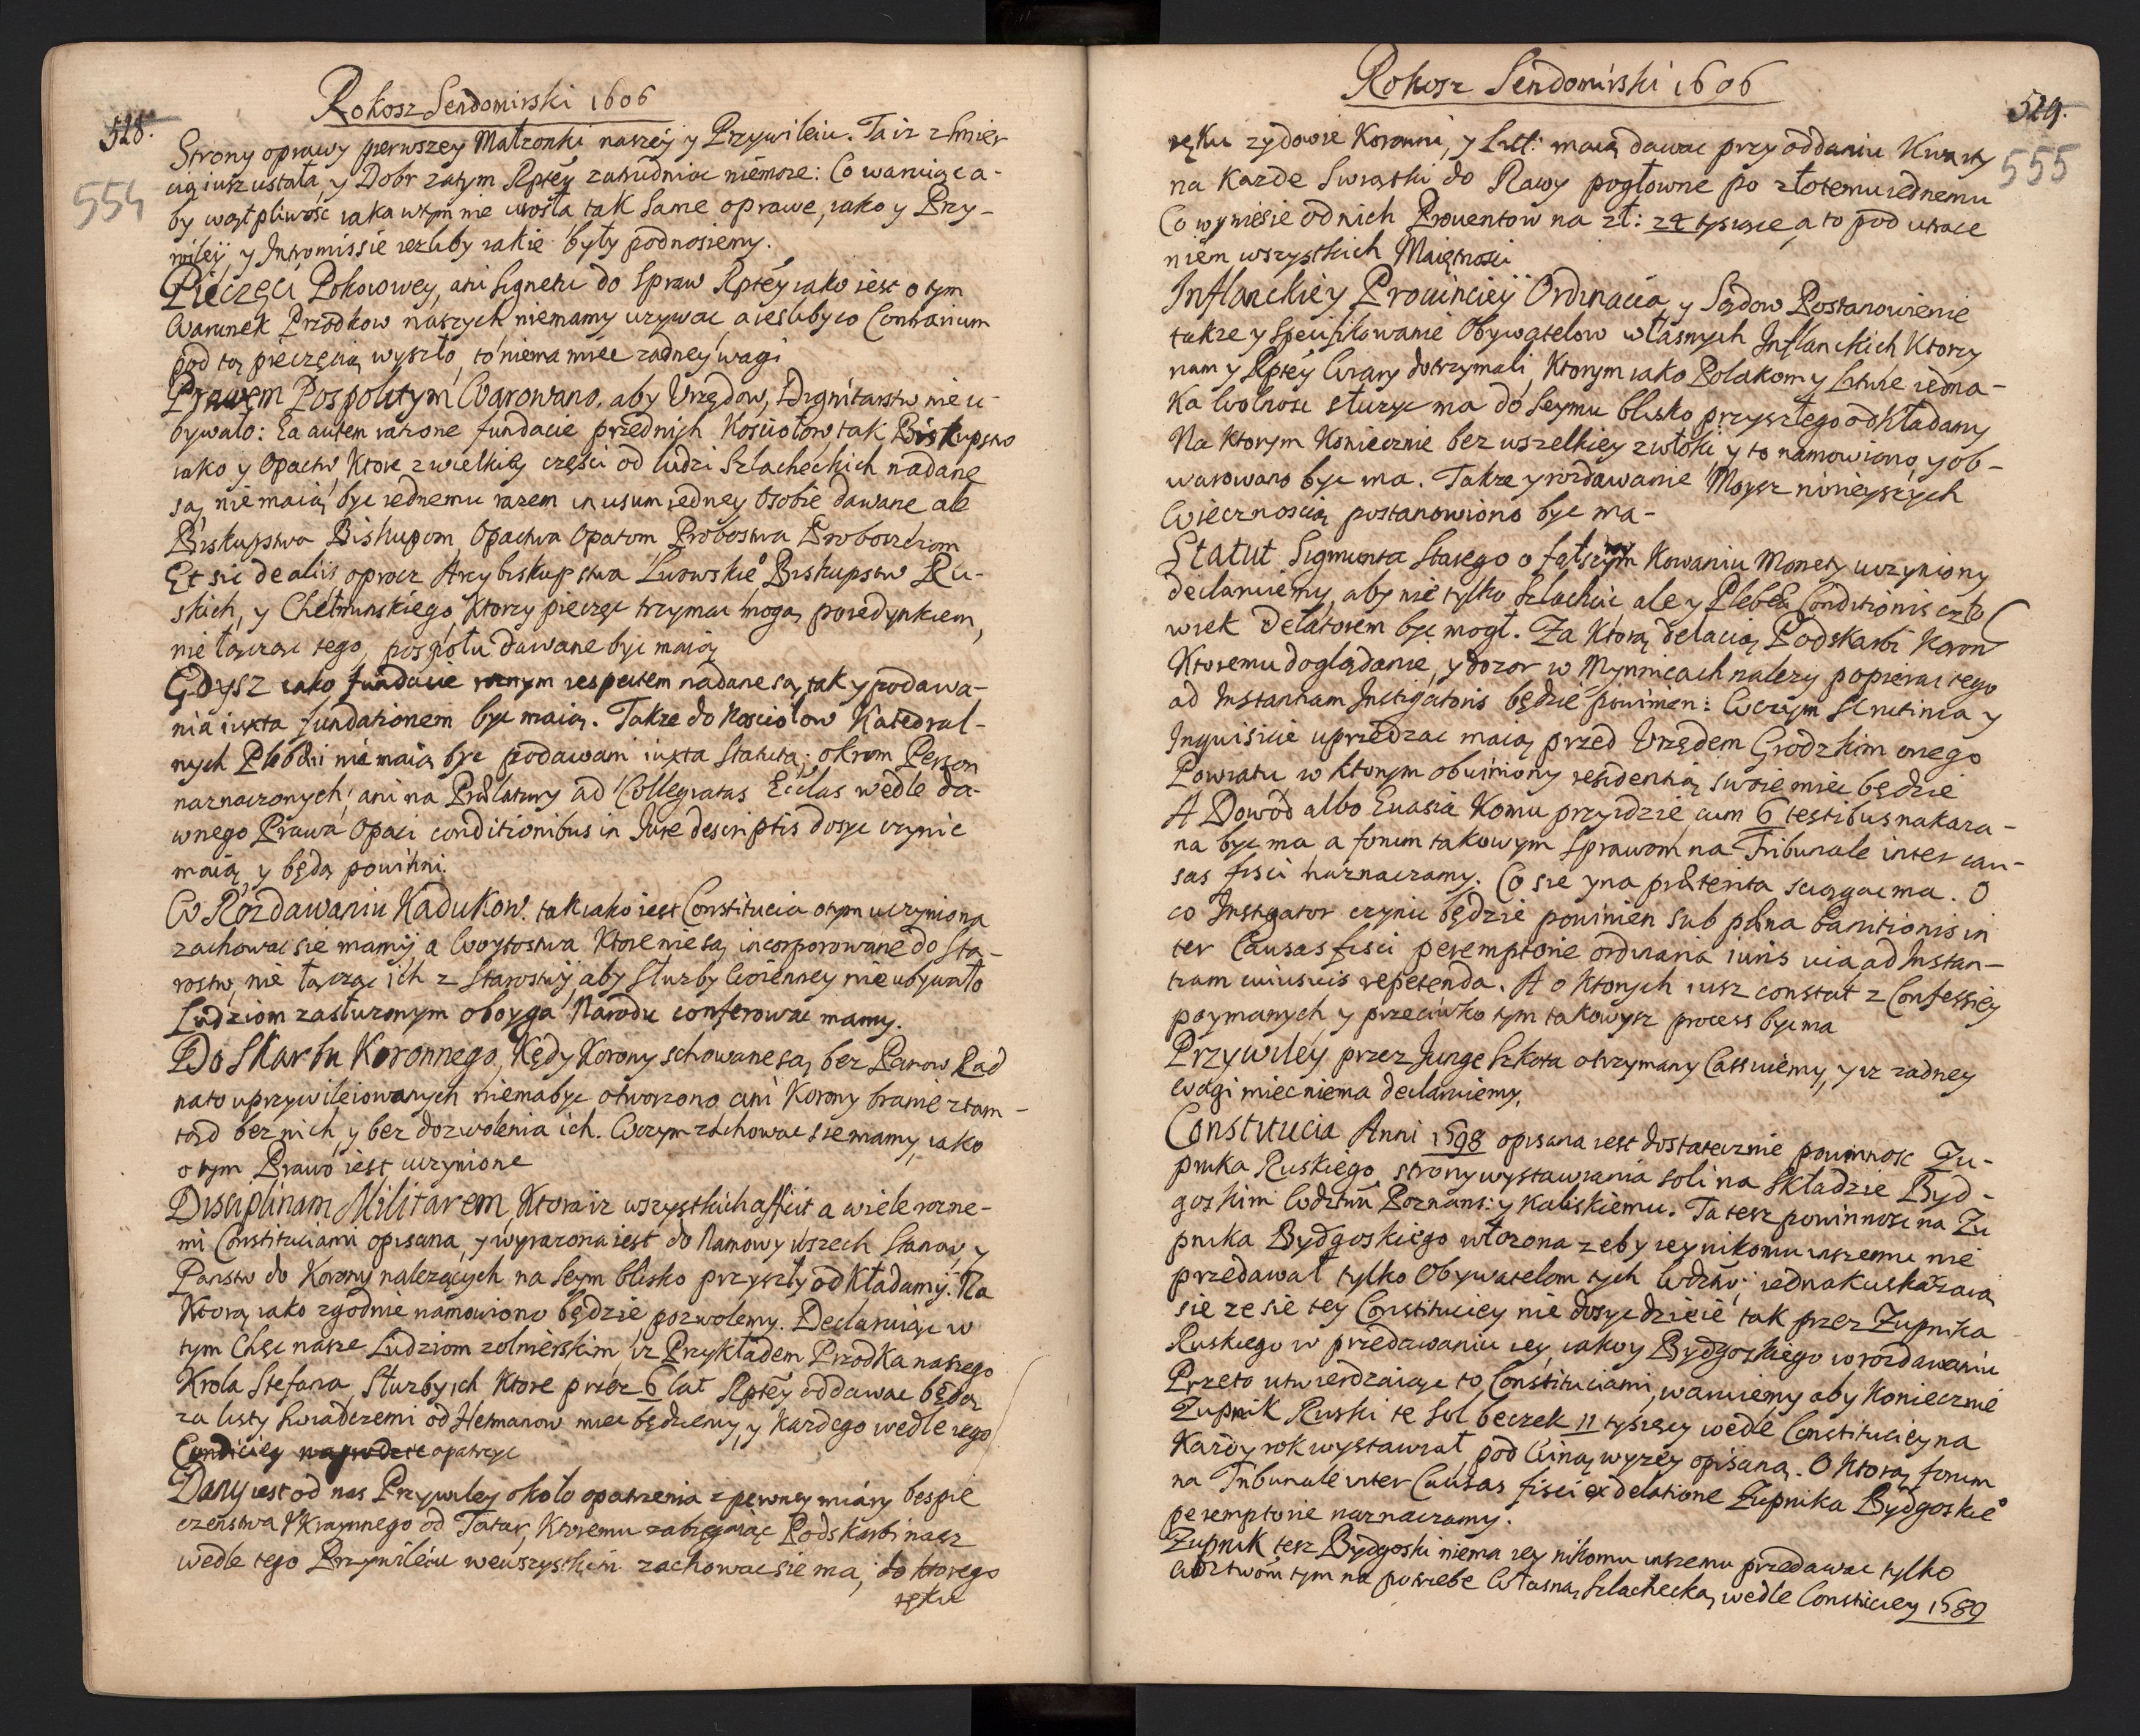 Rokosz Sendomirski 1606
528.
554
Strony oprawy pierwszey Małzonki naszey y Przywileiu. Ta iz z smier
cią iusz ustała, y Dobr zatym Rptey zatrudniac niemoze: Co waruiąc a-
by wątpliwosc iaka wtym nie urosła tak same oprawe, iako y Przy-
wiley y Intromissie iezliby iakie były podnosiemy.
Pieczęci Pokoiowey, ani Signetu do Spraw Rptey iako iest o tym
Warunek Przodkow naszych niemamy uzywac, a iesliby co Contrarium
pod tą pieczęcią wyszło, to niema miec zadney wagi
Prawem Pospolitym Warowano, aby Vrzędow, Dignitarstw nie u-
bywało: Ea autem ratione fundacie przednich Kosciołow tak Biskupstw
iako y Opactw, Ktore z wielkiey części od ludzi Szlacheckich nadane
są, nie maią byc iednemu razem in usum iedney Osobie dawane ale
Biskupstwa Biskupom Opactwa Opatom Probostwa Proboszczom
Et sic de aliis oprocz Arcybiskupstwa Lwowskie° Biskupstw Ru-
skich, y Chełminskiego, Ktorzy pieczęc trzymac mogą poiedynkiem,
nie łącząc tego, pospołu dawane byc maią
Gdysz iako fundacie roznym respectem nadane są, tak y podawa-
nia iuxta fundationem byc maią. Takze do Kosciolow Katedral-
nych Plebei nie maią byc podawani iuxta Statuta; okrom Person
naznaczonych; ani na Prælatury ad Collegiatas Ecclas wedle da-
wnego Prawa Opaci conditionibus in Jure descriptis dosyc czynic
maią y będą powinni.
W Rozdawaniu Kadukow. tak iako iest Constitucia o tym uczyniona
zachowac sie mamy, a Woytostwa Ktore nie są incorporowane do Sta-
rostw, nie łącząc ich z Starostwy, aby Sluzby Woienney nie ubywało
Ludziom zasłuzonym oboyga Narodu conferowac mamy.
Do Skarbu Koronnego, Kędy Korony schowane są, bez Panow Rad
na to uprzywileiowanych niema byc otworzono, ani Korony branie ztam-
tąd bez nich, y bez dozwolenia ich. W czym zachowac sie mamy, iako
o tym Prawo iest uczynione
Disciplinam Militarem, Ktora iz wszystkich afficit a wiele rozne-
mi Constituciami opisana, y wyrazona iest do Namowy wszech Stanow, y
Panstw do Korony nalezących, na Seym blisko przyszły odkładamy. Na
Ktorą iako zgodnie namowiono będzie pozwolemy. Declaruiąc w
tym Chęc nasze Ludziom zolnierskim, iz Przykładem Przodka naszego
Krola Stefana, Słuzby ich Ktore przez 6 lat Rptey oddawac będą
za listy swiadczemi od Hetmanow miec będziemy, y Kazdego wedle iego
Condiciey opatrzyc
Dany iest od nas Przywiley około opatrzenia z pewney miary bespie
czenstwa Vkrainnego od Tatar, Ktoremu zabiegaiąc Podskarbi nasz
wedle tego Przywileiu we wszystkim zachowac sie ma, do ktorego
ręku
Rokosz Sendomirski 1606
529.
555
ręku zydowie Koronni, y Litt: maią dawac przy oddaniu Kwarty
na Kazde Swiątki do Rawy pogłowne po złotemu iednemu
Co wyniesie od nich Prouentow na zł: 24 tysiące, a to pod utrace
niem wszystkich Maiętnosci
Inflanckiey Prouinciey Ordinacia, y Sądow Postanowienie
takze y specifikowanie Obywatelow własnych Inflanckich Ktorzy
nam y Rptey Wiary dotrzymali, Ktorym iako Polakom y Litwie iedna-
ka Wolnosc słuzyc ma do Seymu blisko przyszłego odkładamy
Na Ktorym Koniecznie bez wszelkiey zwłoki, y to namowiono, y ob-
warowano byc ma. Takze y rozdawanie Maysz ninieyszych
Wiecznoscią postanowiono byc ma-
Statut Sigmunta Starego o fałszywym Kowaniu Monety uczyniony
declaruiemy, aby nie tylko Szlachcic ale y Plebeæ Conditionis czło
wiek delatorem byc mogł. Za Ktorą delacią Podskarbi Koron
Ktoremu doglądanie, y dozor w Mynnicach nalezy popierac tego
ad Instantiam Instigatoris będzie powinien: W czym Scrutinia y
Inquisicie uprzedzac maią przed Vrzędem Grodzkim onego
Powiatu w ktorym obwiniony residentią swoie miec będzie
A Dowod albo Euasia Komu przyidzie, cum 6 testibus nakaza-
na byc ma a forum takowym sprawom na Tribunale inter cau-
sas fisci naznaczamy. Co sie y na præterita sciągac ma. O
co Instigator czynic będzie powinien sub pœna banitionis in
ter Causas fisci peremptorie ordinaria iuris uia, ad Instan-
tiam cuiusuis repetenda. A o Ktorych iusz constat z Confessiey
poymanych, y przeciwko tym takowysz process byc ma
Przywiley przez Junge Szkota otrzymany Cassuiemy, y iz zadney
wagi miec niema declaruiemy.
Constitucia Anni 1598 opisana iest dostatecznie powinnosc Zu-
pnika Ruskiego, strony wystawiania soli na Składzie Byd-
goskim Wodztwu Poznans: y Kaliskiemu. Ta tesz powinnosc na Zu
pnika Bydgoskiego włozona zeby iey nikomu inszemu nie
przedawał tylko Obywatelom tych Wdztw; iednak uskarzaią
sie ze sie tey Constituciey nie dosyc dzieie tak przez Zupnika
Ruskiego w przedawaniu iey, iako y Bydgoskiego w rozdawaniu
Przeto utwierdzaiąc to Constituciami, waruiemy aby Koniecznie
Zupnik Ruski te sol beczek 11 tysięcy wedle Constituciey na
Kazdy rok wystawiał, pod Winą wyzey opisaną. O Ktorą forum
na Tribunale inter Causas fisci ex delatione Zupnika Bydgoskie°
peremptorie naznaczamy.
Zupnik tesz Bydgoski niema iey nikomu inszemu przedawac tylko
Wdztwom tym na potrzebe Własną Szlachecką, wedle Consticiey 1589